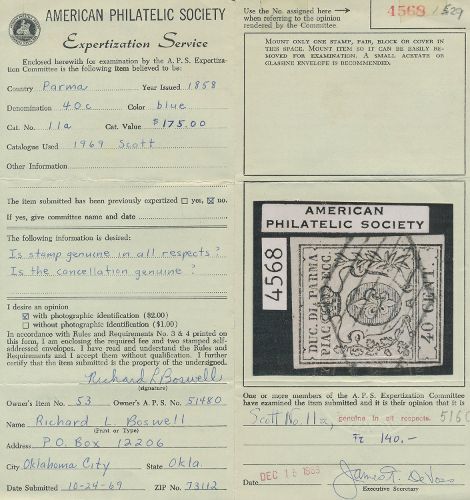 AMERICAN PHILATELIC SOCIETY
Expertization Service
Enclosed herewith for examination by the A. P. S. Expertiza-
tion Committee is the following item believed to be:
Country Parma Year Issued 1858
Denomination 40c Color blue
Cat. No. 11a Cat. Value $175.00
Catalogue Used 1969 Scott
Other Information
The item submitted has been previously expertized yes, no.
If yes, give committee name and date
The following information is desired:
Is stamp genuine in all respects?
Is the cancellation genuine?
I desire an opinion
with photographic identification ($2.00)
without photographic identification ($1.00)
In accordance with Rules and Requirements No. 3 & 4 printed on
this form, I am enclosing the required fee and two stamped self-
addressed envelopes. I have read and understand the Rules and
Requirements and I accept them without qualification. I further
certify that the item submitted is the property of the undersigned.
Richard L Boswell
(signature)
Owner's Item No. 53 Owner's A. P. S. No. 51480
Name Richard L. Boswell
(Print or Type)
Address P.O. Box 12206
City Oklahoma City State Okla.
Date Submitted 10-24-69 ZIP No. 73112
Use the No. assigned here
when referring to the opinion
rendered by the Committee.
4568 / 529
Mount only one stamp, pair, block or cover in
this space. Mount item so it can be easily re-
moved for examination. A small acetate or
glassine envelope is recommended.
AMERICAN
PHILATELIC SOCIETY
4568
DUC. DI PARMA
PIAC. ECC.
40 CENT.
One or more members of the A. P. S. Expertization Committee
have examined the item submitted and it is their opinion that it is
Scott No. 11a, genuine in all respects. 5160
140.—
DEC 16 1969
Date
James T. DeVoss
Executive Secretary